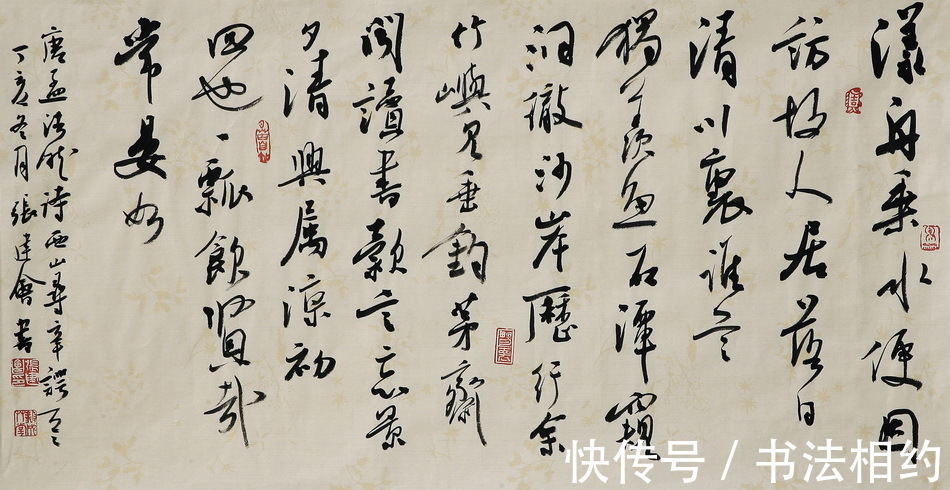 漾舟乘水便因
访故人居落日
清川裏谁言
獨羡鱼石潭窺
洞徹沙岸歷行余
竹嶼見垂釣茅齋
闻讀書款言忘景
夕清興屬凉初
回也一瓢飲賢哉
常晏如
唐孟浩然诗西山尋辛諤
丁亥冬月張建會書
快传号 / 书法相约